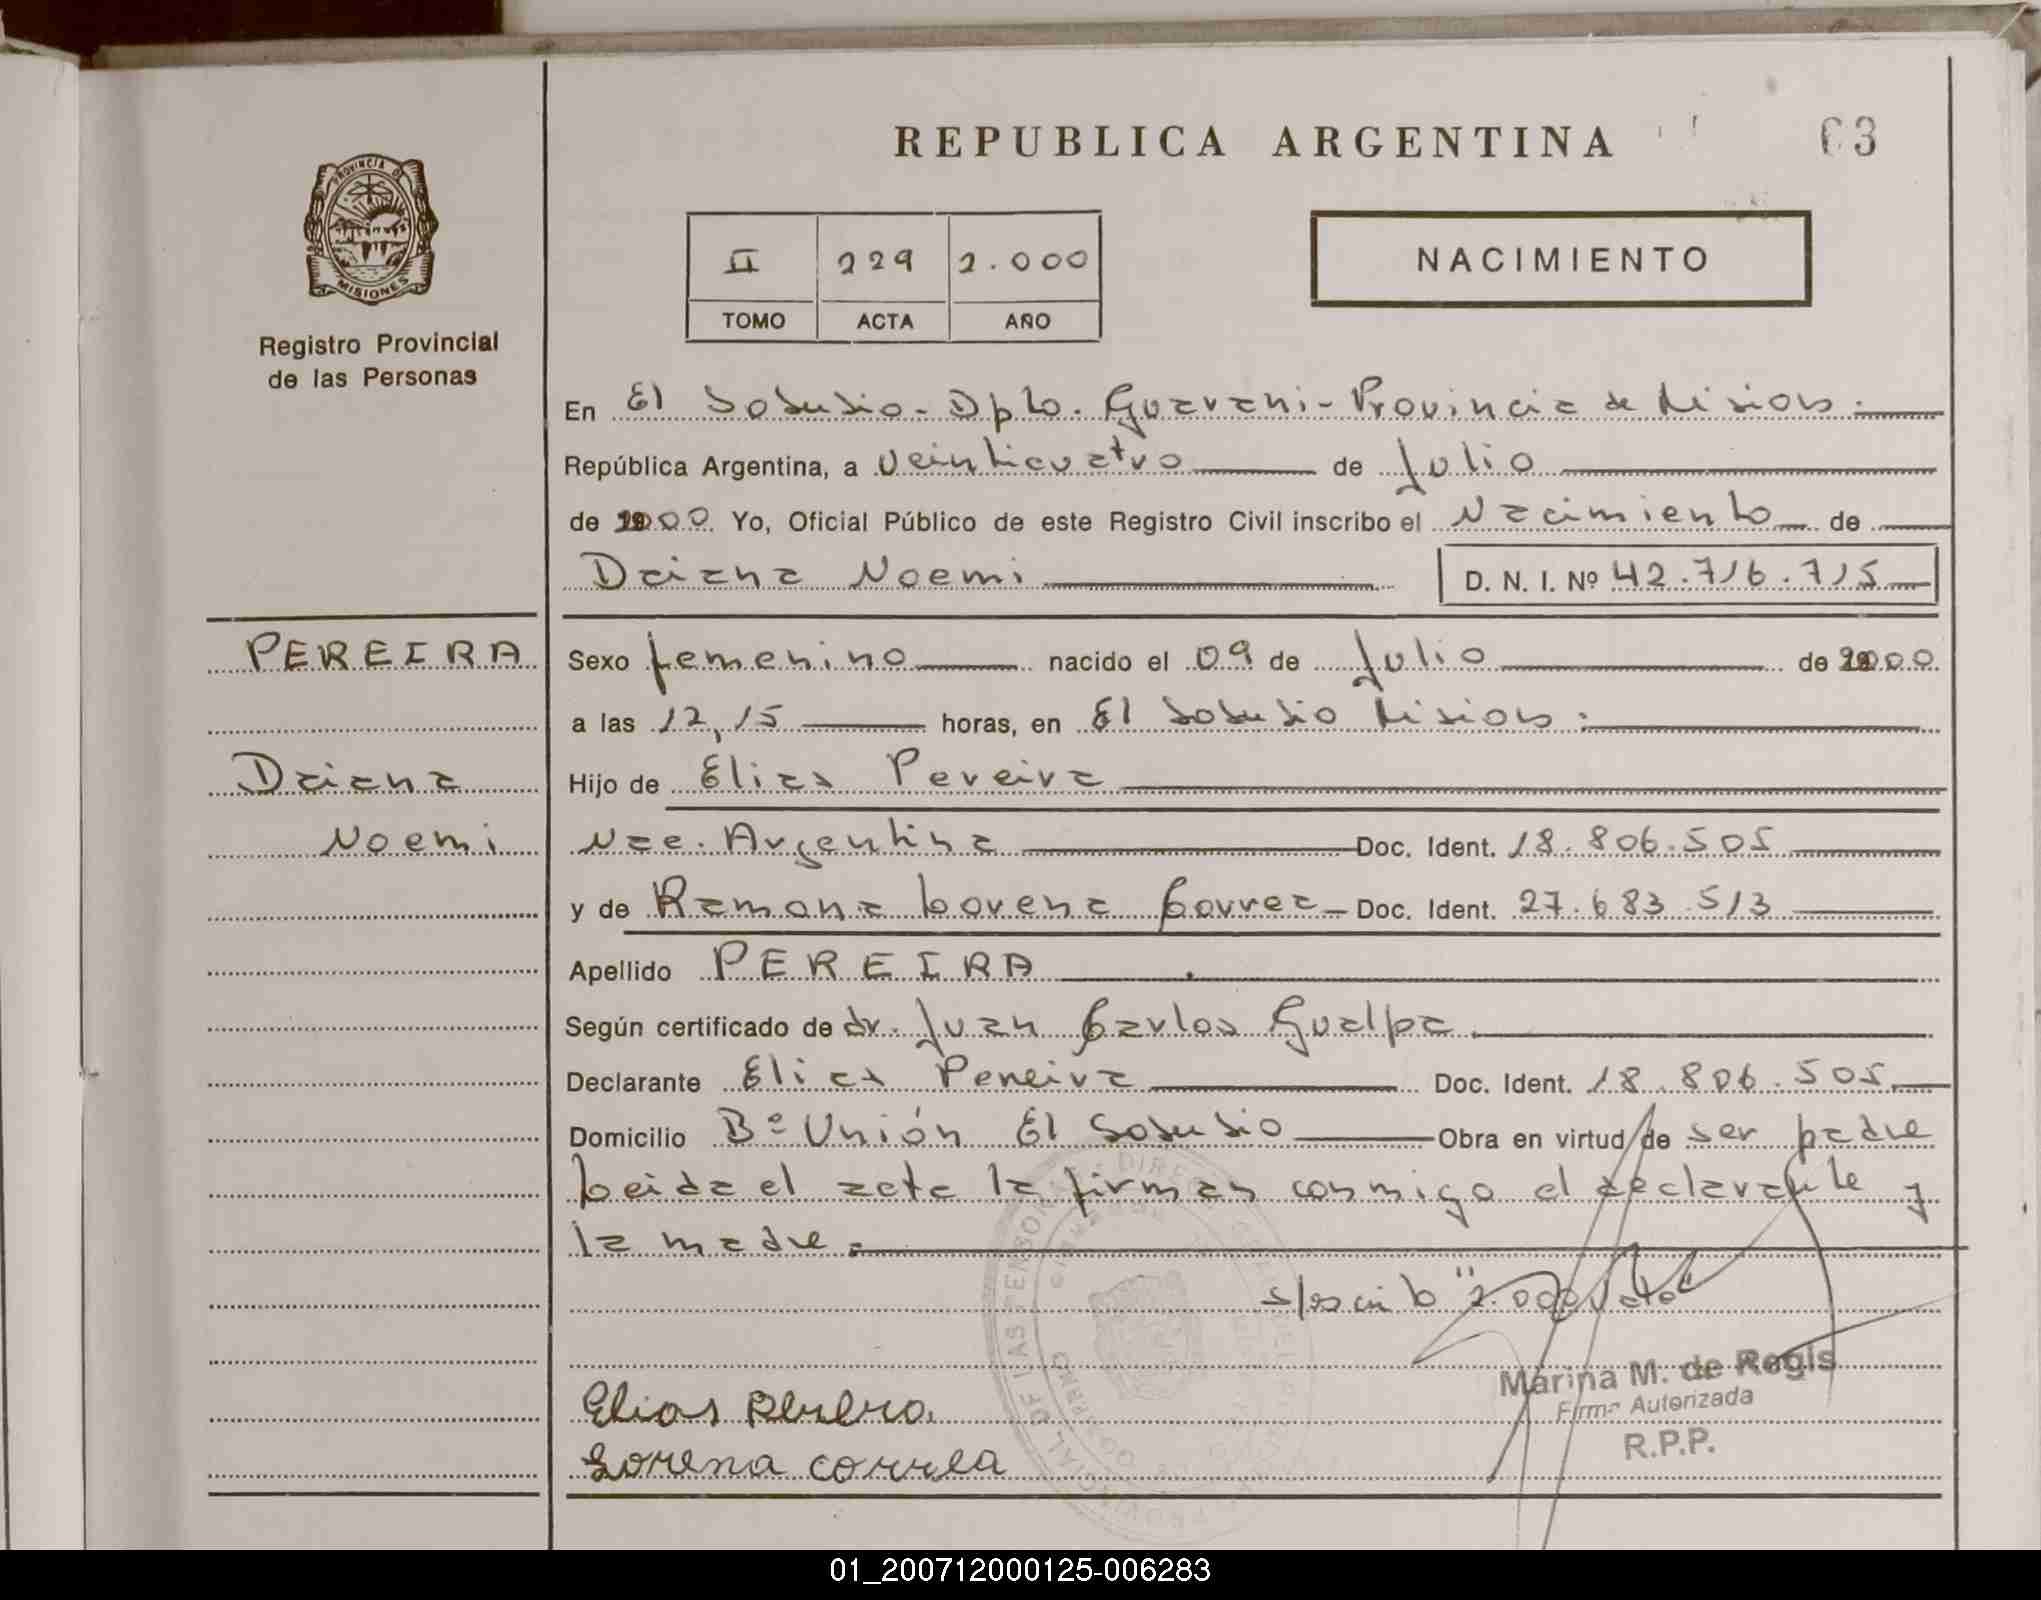 REPUBLICA ARGENTINA
63
PROVINCIA DE
MISIONES
Registro Provincial
de las Personas
II 229 2.000
TOMO ACTA AÑO
NACIMIENTO
En El Soberbio - Dpto. Guarani - Provincia de Misiones.
República Argentina, a Veinticuatro de Julio
de 2000 Yo, Oficial Público de este Registro Civil inscribo el Nacimiento de
Daiana Noemi D. N. I. Nº 42.716.715
PEREIRA
Daiana
Noemi
Sexo femenino nacido el 09 de Julio de 2000
a las 12,15 horas, en El Soberbio Misiones.
Hijo de Elias Pereira
Nac. Argentina Doc. Ident. 18.806.505
y de Ramona Lorena Correa Doc. Ident. 27.683.513
Apellido PEREIRA
Según certificado de dr. Juan Carlos Gualpa
Declarante Elias Pereira Doc. Ident. 18.806.505
Domicilio Bº Unión El Soberbio Obra en virtud de ser padre
Leida el acta la firman conmigo el declarante y
la madre.
"2.000 Vale"
Marina M. de Regis
Firma Autorizada
R.P.P.
Elias Pereira
Lorena Correa
01_200712000125-006283